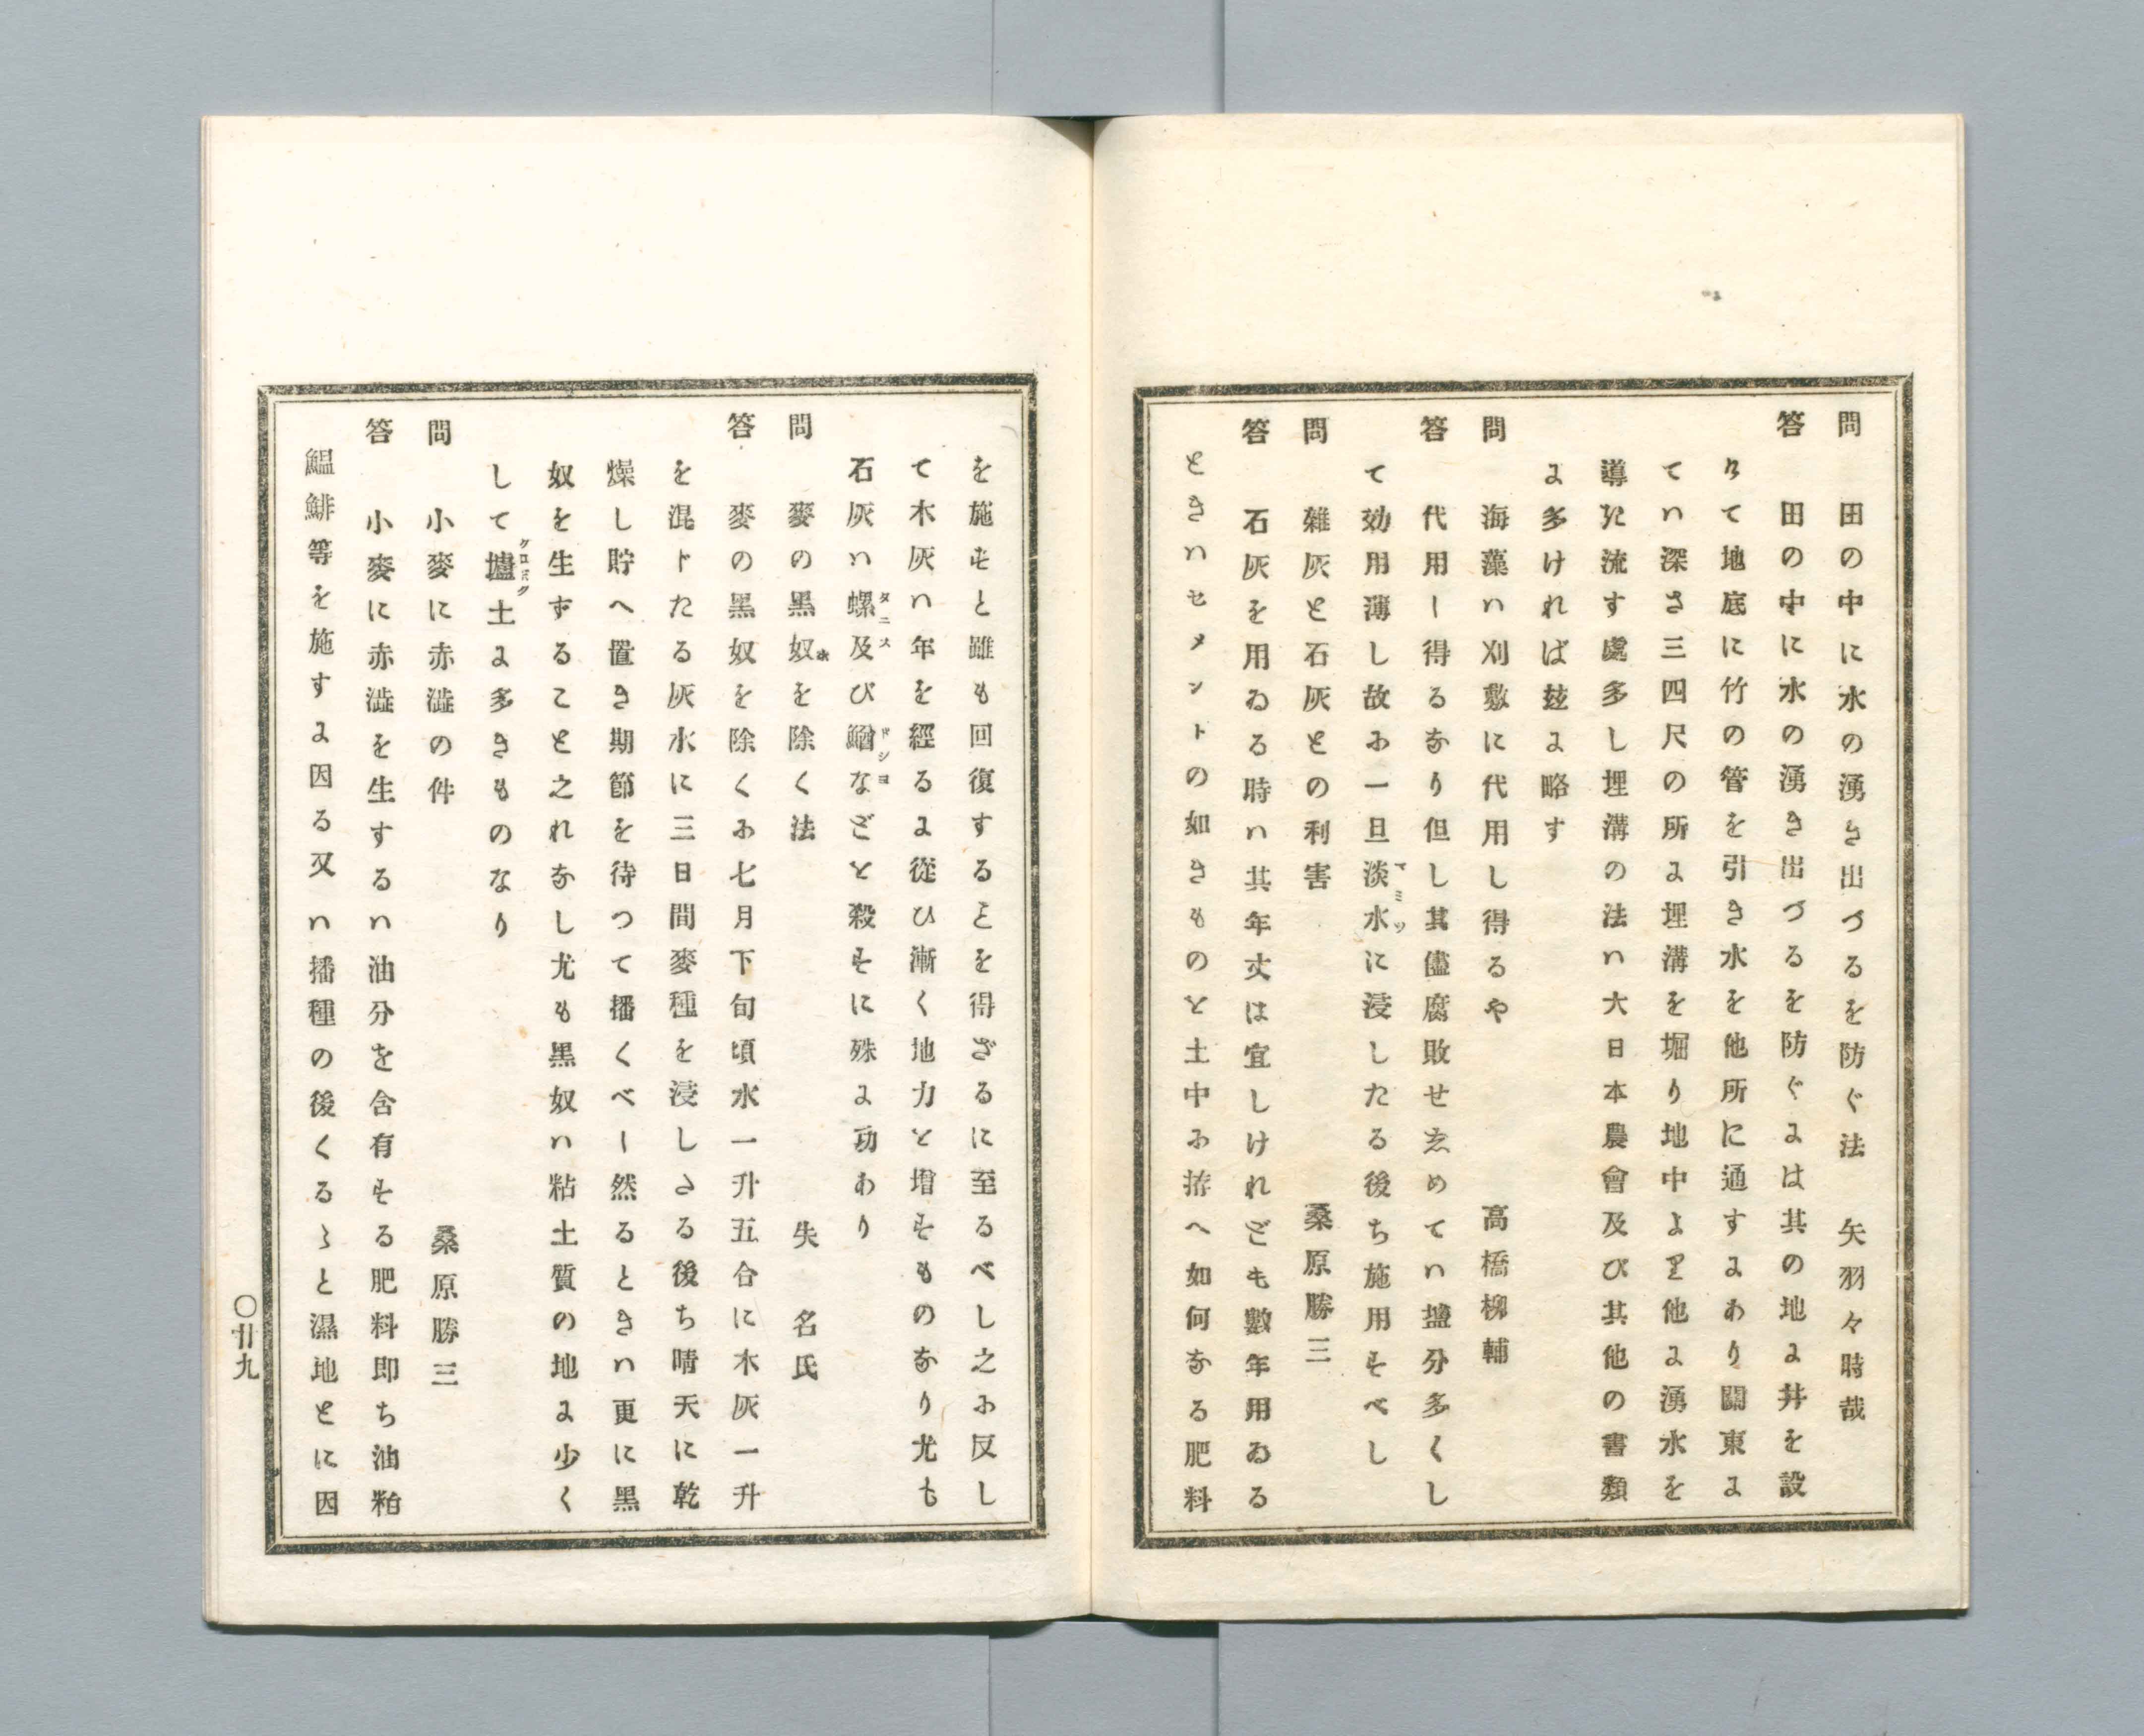 問　田の中に水の湧き出づるを防ぐ法　矢羽々時哉
答　田の中に水の湧き出づるを防ぐよは其の地よ井を設
けて地底に竹の管を引き水を他所に通すよあり關東よ
てハ深さ三四尺の所よ埋溝を堀り地中より他よ湧水を
導き流す處多し埋溝の法ハ大日本農會及び其他の書類
よ多ければ玆よ略す
問　海藻ハ刈敷に代用し得るや　高橋柳輔
答　代用し得るなり但し其儘腐敗せゑめてハ鹽分多くし
て効用薄し故み一旦淡水マミヅに浸したる後ち施用すべし
問　雜灰と石灰との利害　桑原勝三
答　石灰を用ゐる時ハ其年丈は宜しけれども數年用ゐる
ときハセメントの如きものと土中み拵へ如何なる肥料
を施すと雖も回復することを得ざるに至るべし之み反し
て木灰ハ年を經るよ從ひ漸く地力と増すものなり尤も
石灰ハ螺タニス及び鰌ドジヨなどと殺すに殊よ功あり
問　麥の黑奴を除く法　失名氏
答　麥の黑奴を除くみ七月下旬頃水一升五合に木灰一升
を混ドたる灰水に三日間麥種を浸しさる後ち晴天に乾
燥し貯へ置き期節を待つて播くべし然るときハ更に黑
奴を生ずること之れなし尤も黑奴ハ粘土質の地よ少く
して壚クロボク土よ多きものなり
問　小麥に赤澁の件　桑原勝三
答　小麥に赤澁を生するハ油分を含有する肥料即ち油粕
鰛鯡等を施すよ因る又ハ播種の後くるゝと濕地とに因
〇廿九